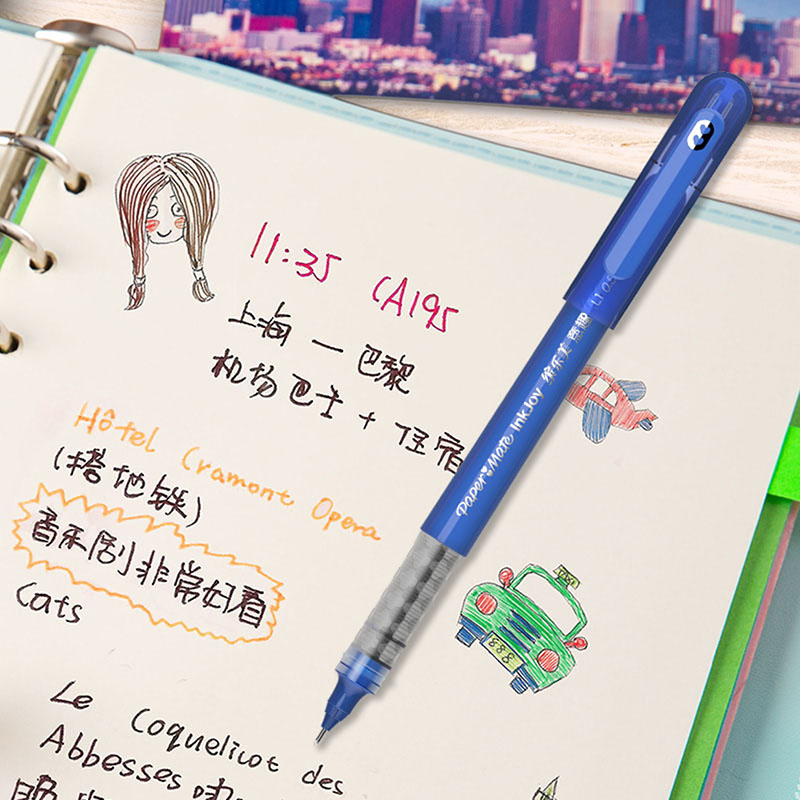 11:35 CA195
上海 — 巴黎
机场巴士 + 住宿
Hôtel Cramont Opera
(搭地铁)
音乐剧非常好看
Cats
Le Coquelicot des
Abbesses
Paper Mate InkJoy 缤乐美 意趣 L1 0.5
888